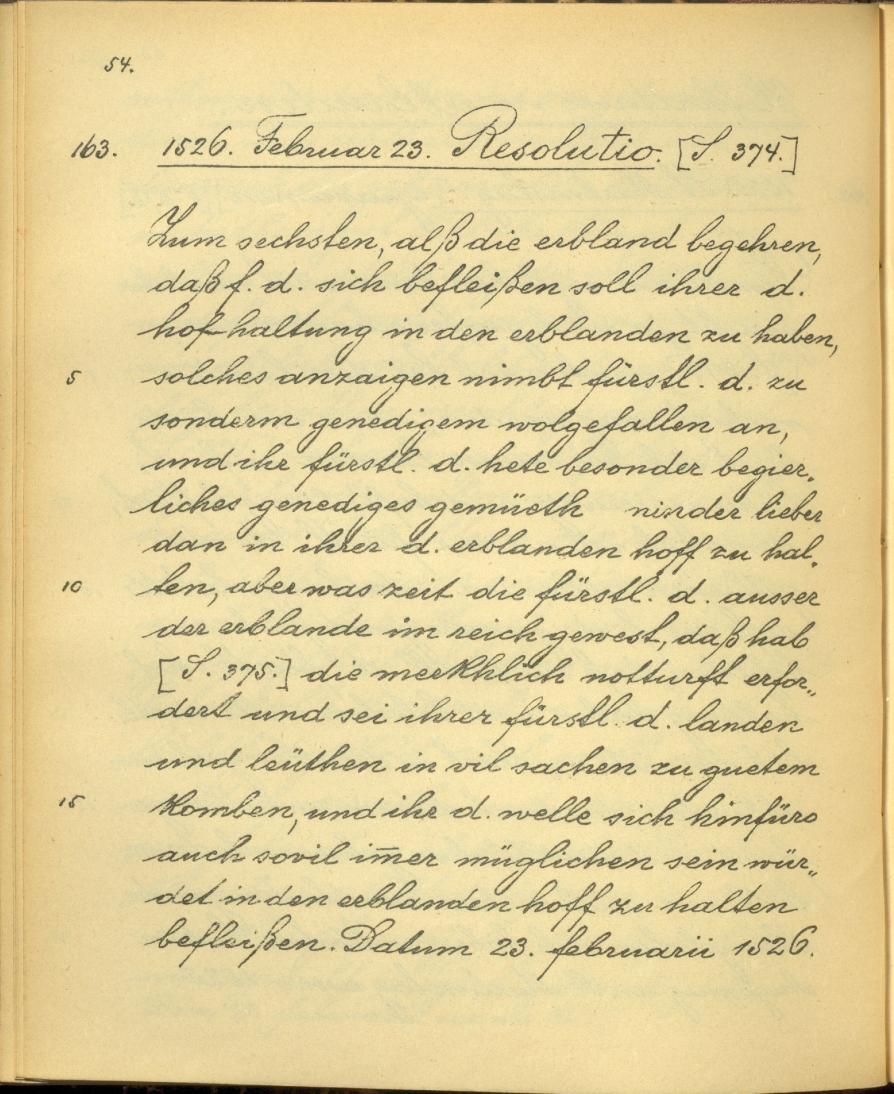 54.
163. 1526. Februar 23. Resolutio. [S. 374.]
Zum sechsten, alß die erbland begehren,
daß f. d. sich befleißen soll ihrer d.
hofhaltung in den erblanden zu haben,
5 solches anzaigen nimbt fürstl. d. zu
sonderm genedigem wolgefallen an,
und ihr fürstl. d. hete besonder begier-
liches genediges gemüeth ninder lieber
dan in ihrer d. erblanden hoff zu hal-
10 ten, aber was zeit die fürstl. d. ausser
der erblande im reich gewest, daß hab
[S. 375.] die merkhlich notturft erfor„
dert und sei ihrer fürstl. d. landen
und leüthen in vil sachen zu guetem
15 komben, und ihr d. welle sich hinfüro
auch sovil im̅er müglichen sein wür„
det in den erblanden hoff zu halten
befleißen. Datum 23. februarii 1526.